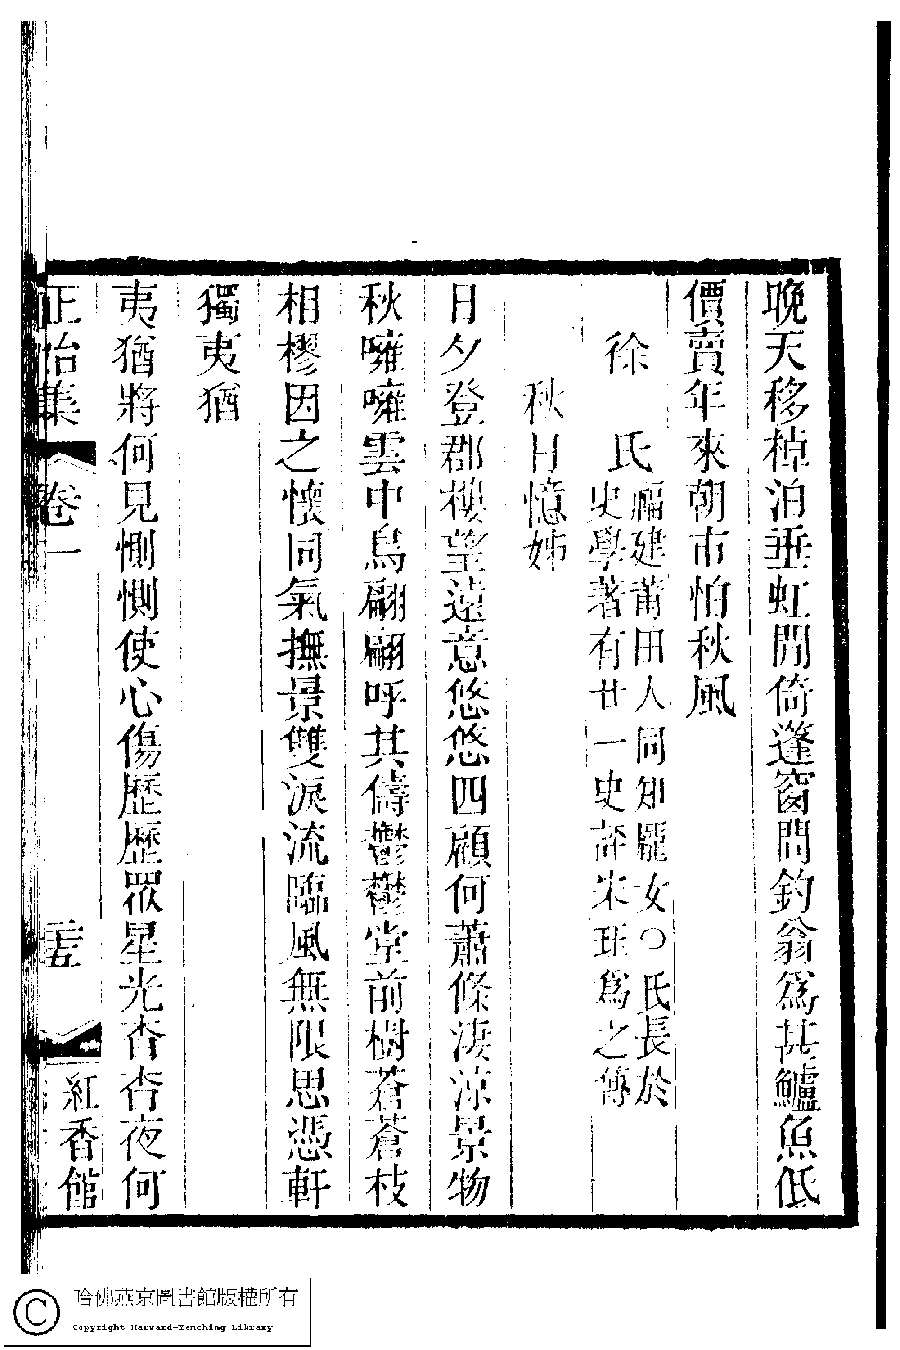 晚天移棹泊垂虹閒倚篷窗問釣翁爲甚鱸魚低
價賣年來朝市怕秋風
徐　氏
福建莆田人同知龍女○氏長於
史學著有廿一史評宋珏爲之傳
秋日憶姊
日夕登郡樓望遠意悠悠四顧何蕭條淒涼景物
秋嗈嗈雲中鳥翩翩呼其儔鬱鬱堂前樹蒼蒼枝
相樛因之懷同氣撫景雙淚流臨風無限思憑軒
獨夷猶
夷猶將何見惻惻使心傷歷歷眾星光杳杳夜何
正始集
卷一
紅香館
哈佛燕京圖書館版權所有
Copyright Harvard-Yenching Library